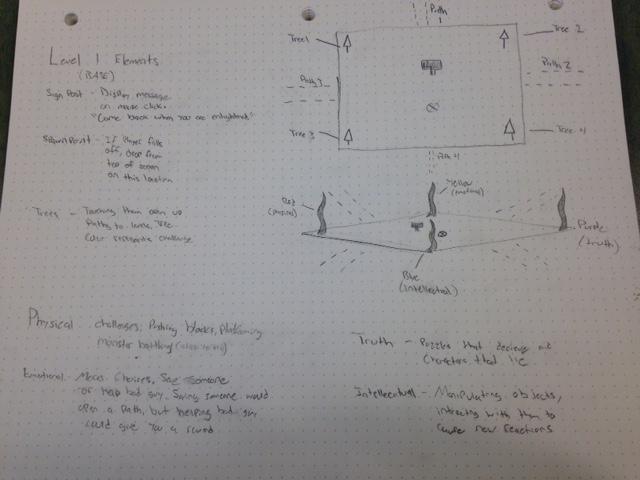 Level 1 Elements
(BASE)
Sign Post - Display message
on mouse click.
"Come back when you are enlightened"
Spawn Point - If player falls
off, drop from
top of screen
on this location
Trees - Touching them open up
Paths to lands. Tree
Color represents challenge
Path 1
Tree 1
Tree 2
Path 3
Path 2
Tree 3
Tree 4
Path 4
Red
(physical)
Yellow
(emotional)
Purple
(truth)
Blue
(intellectual)
Physical challenges, Pushing blocks, Platforming
monster battling
Emotional - Moral Choices, Save someone
or help bad guy. Saving someone would
open a path, but helping bad guy
could give you a reward.
Truth - Puzzles that decieve and
Characters that lie
Intellectual - Manipulating objects,
interacting with them to
cause new reactions